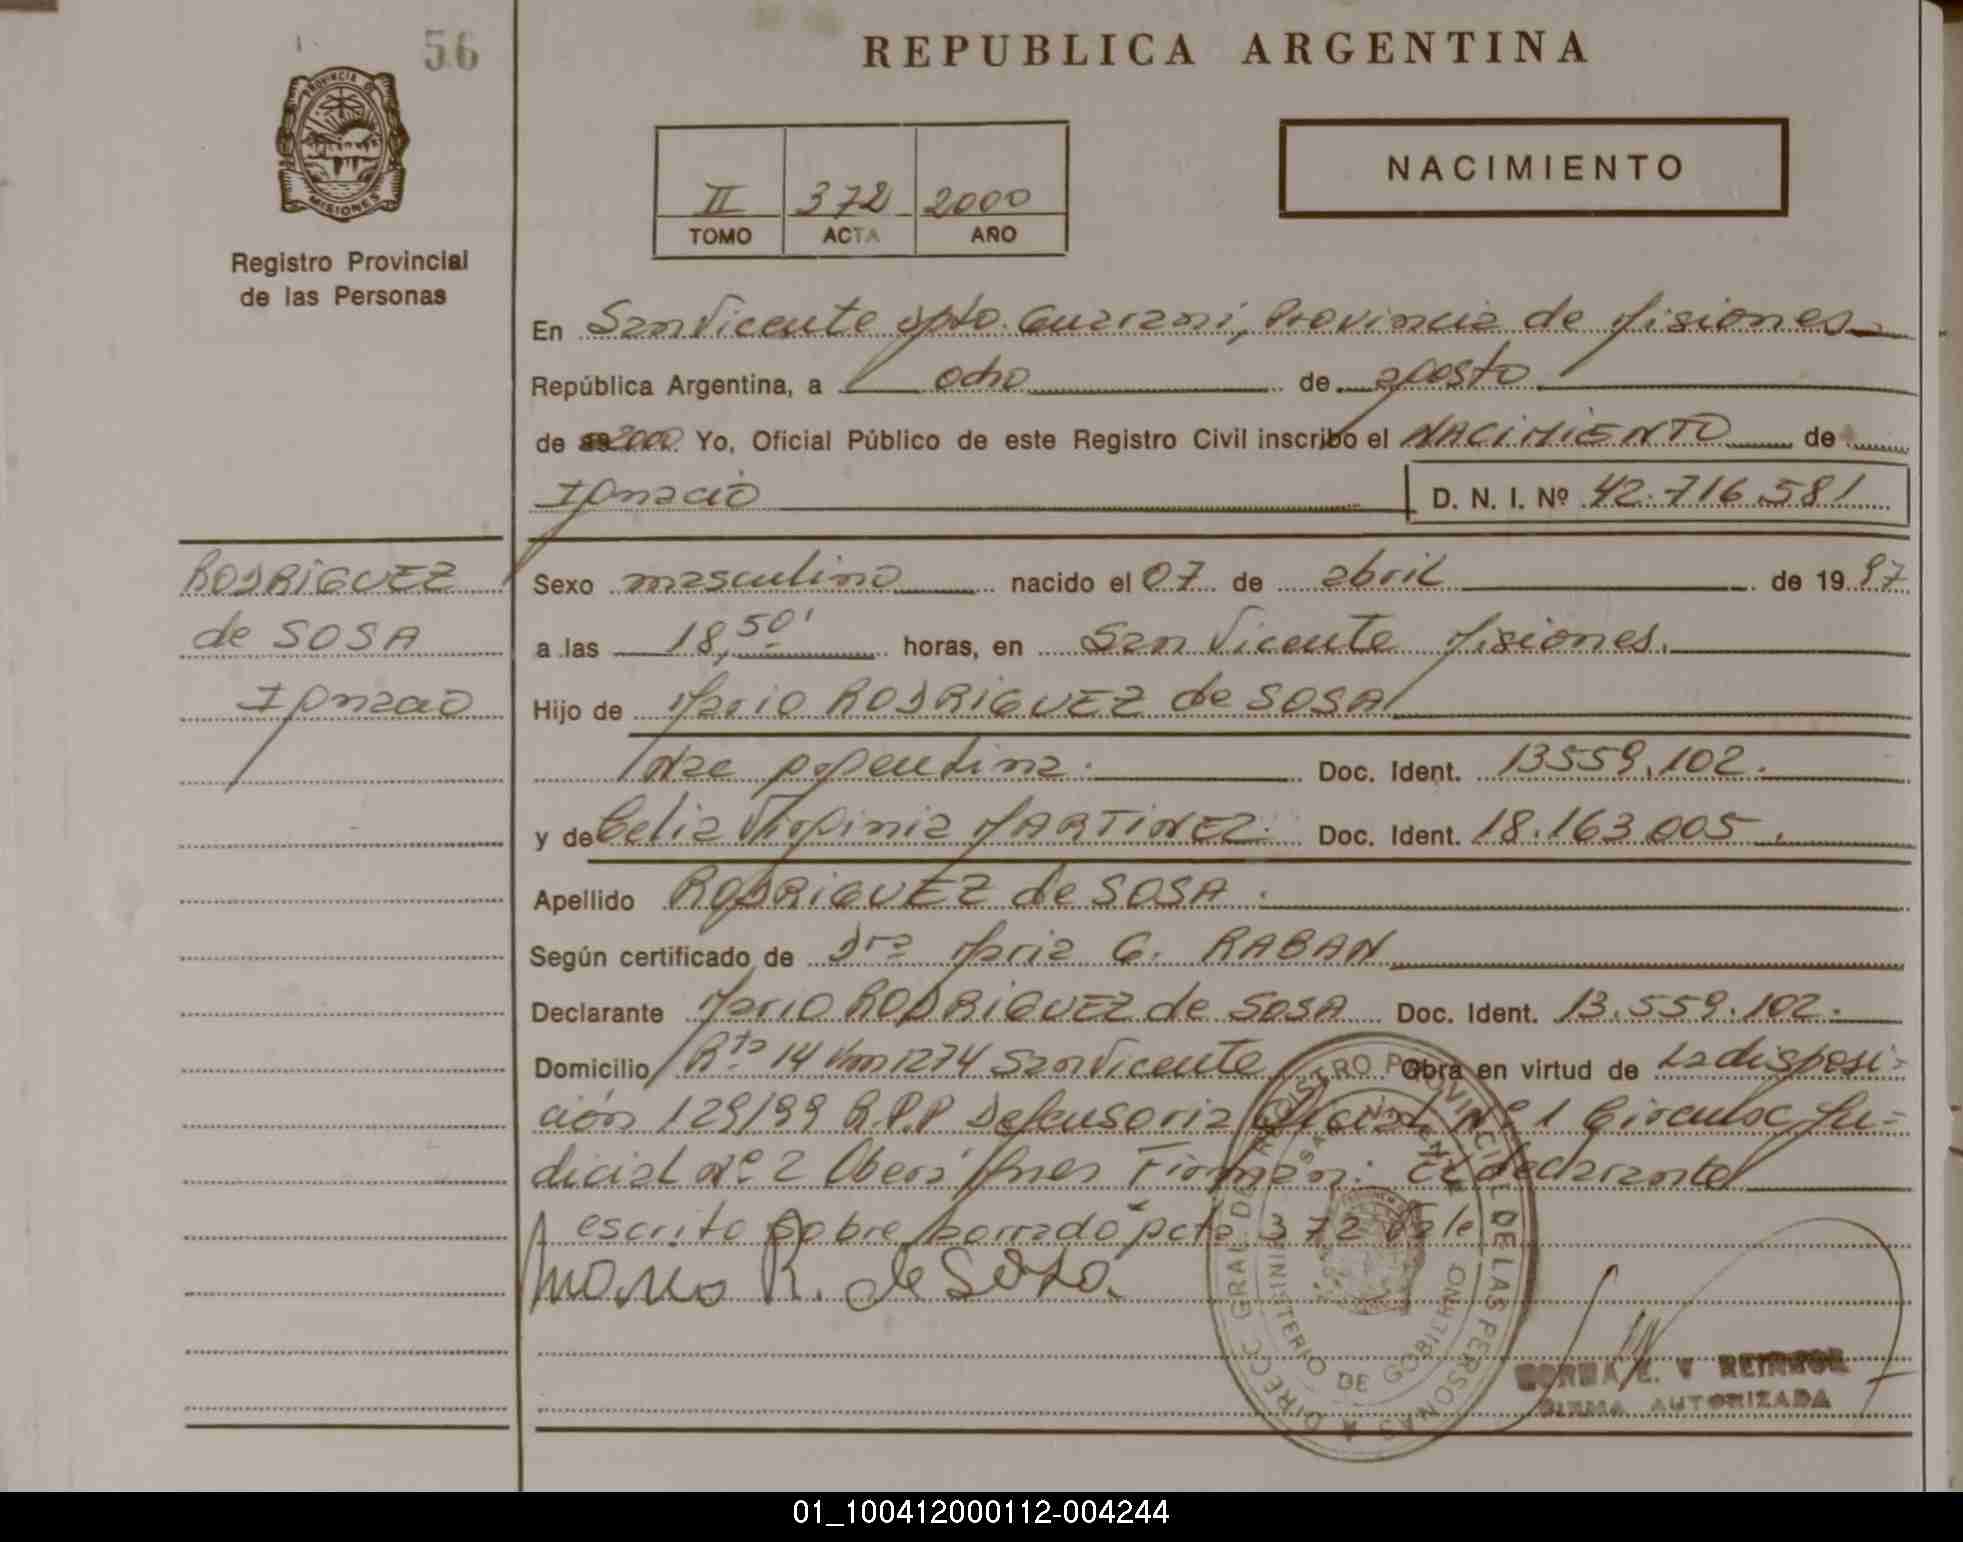 56
REPUBLICA ARGENTINA
PROVINCIA DE
MISIONES
Registro Provincial
de las Personas
II 372 2000
TOMO ACTA AÑO
NACIMIENTO
En San Vicente dpto. Guarani, Provincia de Misiones
República Argentina, a ocho de agosto
de 2000 Yo, Oficial Público de este Registro Civil inscribo el NACIMIENTO de
Ignacio D. N. I. Nº 42.716.581
RODRIGUEZ
de SOSA
Ignacio
Sexo masculino nacido el 07 de abril de 19 97
a las 18,50' horas, en San Vicente Misiones.
Hijo de Mario RODRIGUEZ de SOSA
Nac argentina. Doc. Ident. 13559.102.
y de Celia Virginia MARTINEZ. Doc. Ident. 18.163.005.
Apellido RODRIGUEZ de SOSA.
Según certificado de Dra Maria G. RABAN
Declarante Mario RODRIGUEZ de SOSA Doc. Ident. 13.559.102.
Domicilio Rta 14 Km 1274 San Vicente Obra en virtud de La disposi-
ción 129/99 R.P.P Defensoria Oficial Nº 1 Circunsc Ju-
dicial Nº 2 Oberá Mnes Firman: El declarante
escrito sobre borrado acta 372 Vale
Mario R. de Sosa
DIRECC GRAL DE REGISTRO PROVINCIAL DE LAS PERSONAS
SAN VICENTE
MINISTERIO DE GOBIERNO
FIRMA AUTORIZADA
01_100412000112-004244